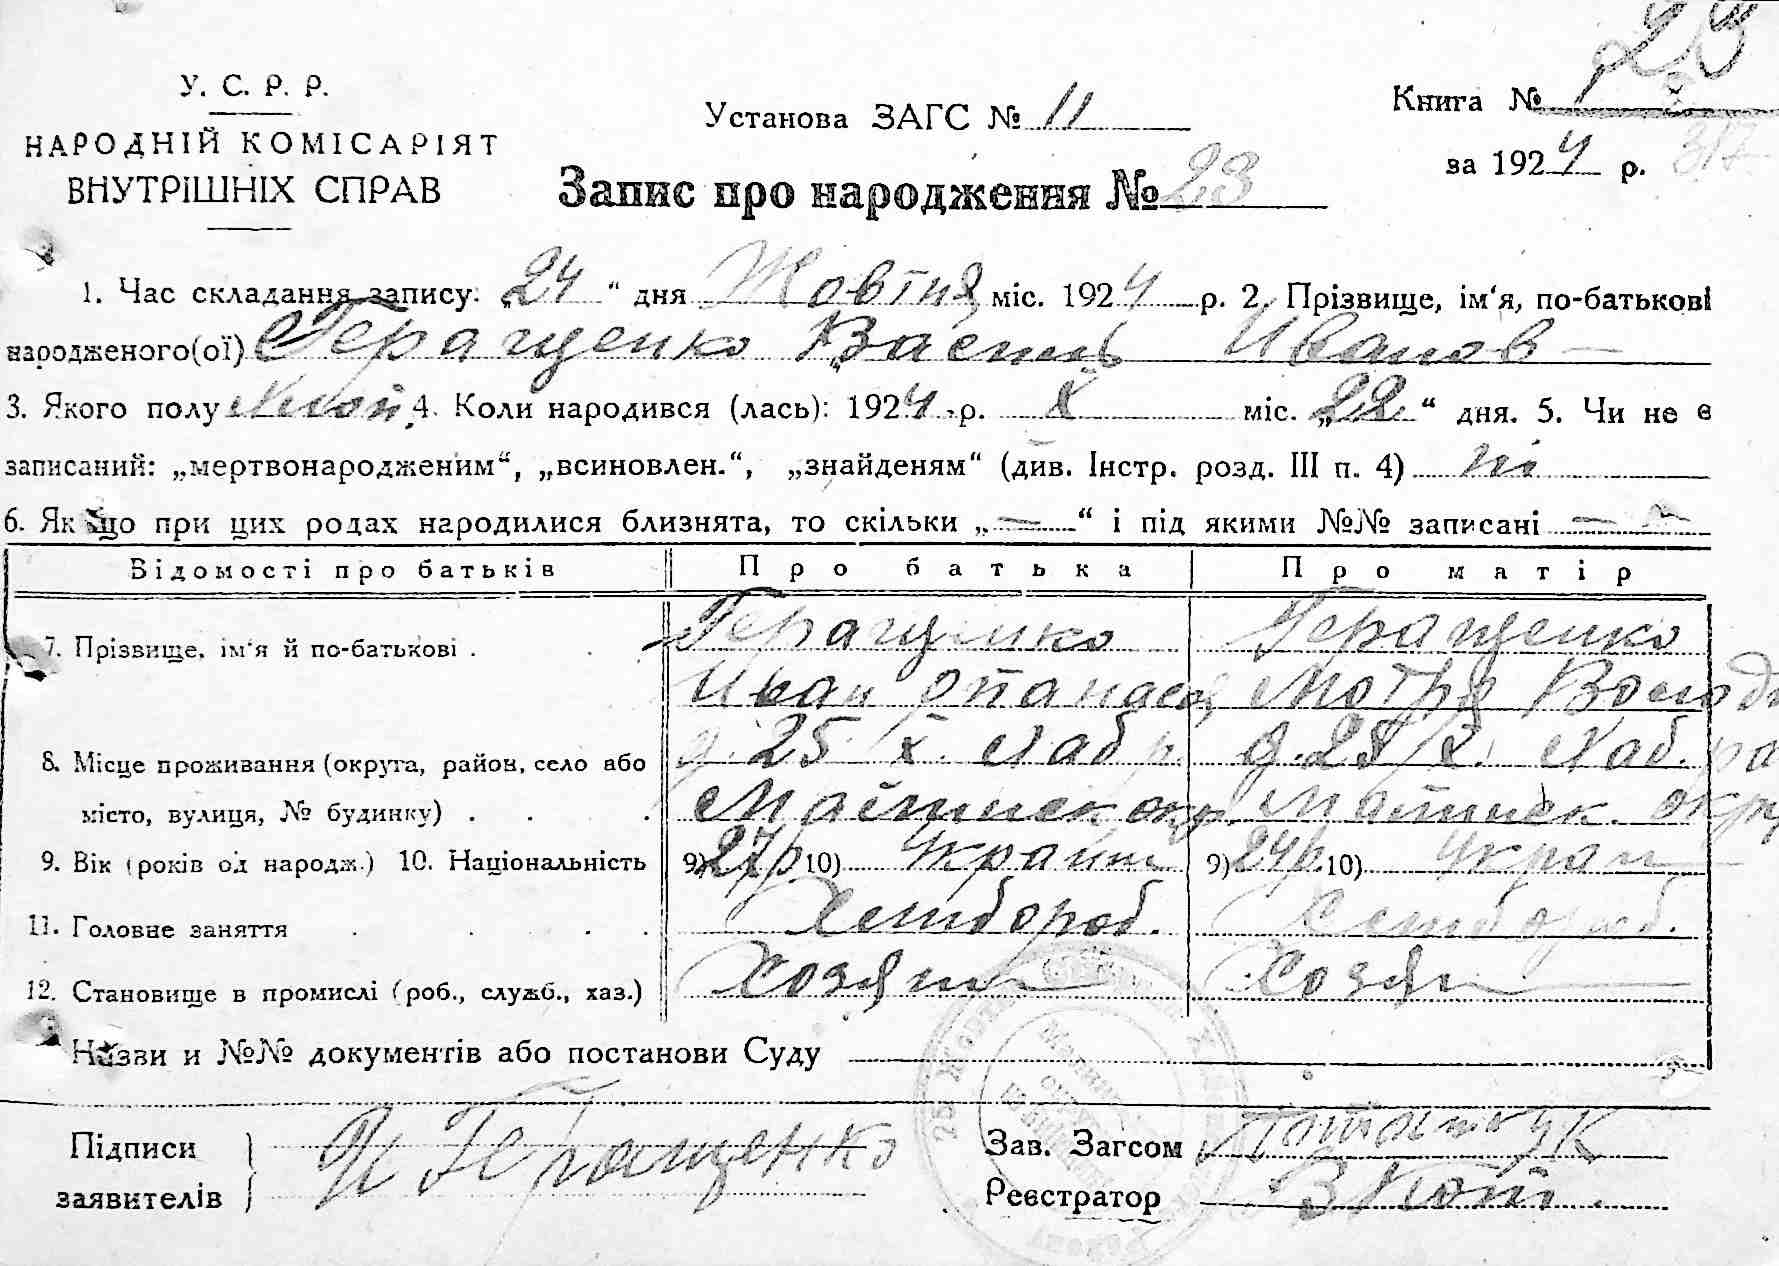 У. С. Р. Р.
НАРОДНІЙ КОМІСАРІЯТ
ВНУТРІШНІХ СПРАВ
Установа ЗАГС № 11
Книга № 23
за 1924 р. 317
Запис про народження № 23
1. Час складання запису: „24" дня Жовтня міс. 1924 р. 2. Прізвище, ім'я, по-батькові
народженого(ої) Геращенко Василь Иванов
3. Якого полу 4. Коли народився (лась): 1924 р. X міс. „22" дня. 5. Чи не є
записаний: „мертвонародженим", „всиновлен.", „знайденям" (див. Інстр. розд. III п. 4) ні
6. Якщо при цих родах народилися близнята, то скільки „—" і під якими №№ записані —
Відомості про батьків Про батька Про матір
7. Прізвище, ім'я й по-батькові . Геращенко Геращенко
Иван Опанасов Мотря Володи
8. Місце проживання (округа, район, село або д. 25/X. Хаб р. д. 25/X. Хаб. ра
місто, вулиця, № будинку) . окр. окру
9. Вік (років од народж.) 10. Національність 9) 27 р 10) Україн 9) 24 р. 10) Украи
11. Головне заняття Хлібороб. Хлібороб.
12. Становище в промислі (роб., служб., хаз.) Хозяин Хозяи
Назви и №№ документів або постанови Суду
Підписи
заявителів И Геращенко
Зав. Загсом
Реєстратор